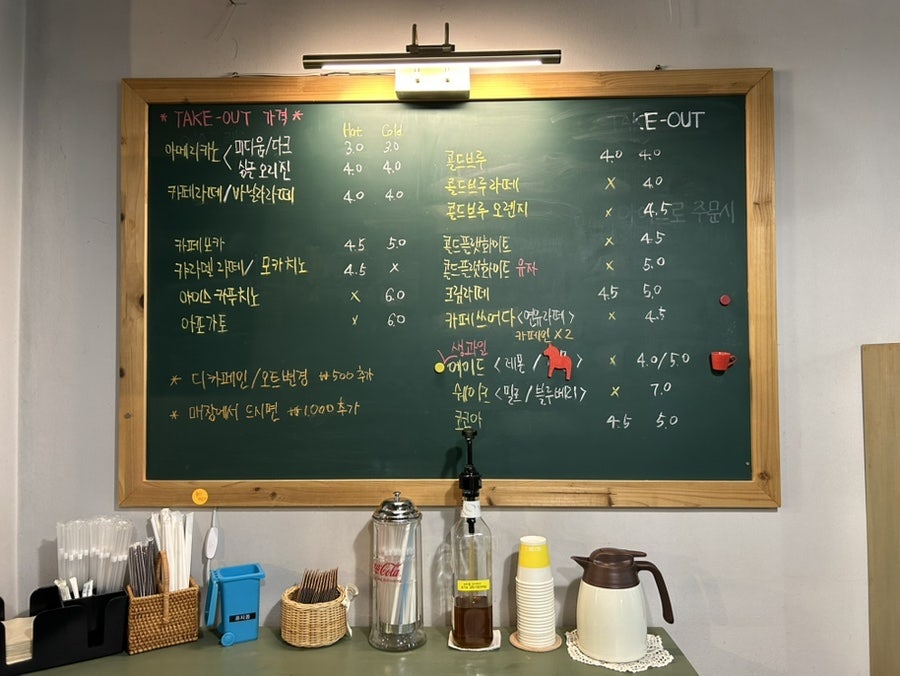 * TAKE-OUT 가격 *
Hot Cold
아메리카노 < 미디움/다크 3.0 3.0
싱글 오리진 4.0 4.0
카페라떼/바닐라라떼 4.0 4.0
카페모카 4.5 5.0
카라멜라떼/ 모카치노 4.5 x
아이스 카푸치노 x 6.0
아포가토 x 6.0
* 디카페인/오트변경 ₩500 추가
* 매장에서 드시면 ₩1,000 추가
TAKE-OUT
콜드브루 4.0 4.0
콜드브루라떼 x 4.0
콜드브루 오렌지 x 4.5
주문시
콜드플랫화이트 x 4.5
콜드플랫화이트 유자 x 5.0
크림라떼 4.5 5.0
카페쓰어다 <연유라떼> x 4.5
카페인 x 2
생과일
에이드 < 레몬 / > x 4.0/5.0
쉐이크 <밀크 / 블루베리> x 7.0
코코아 4.5 5.0
Coca-Cola
휴지통